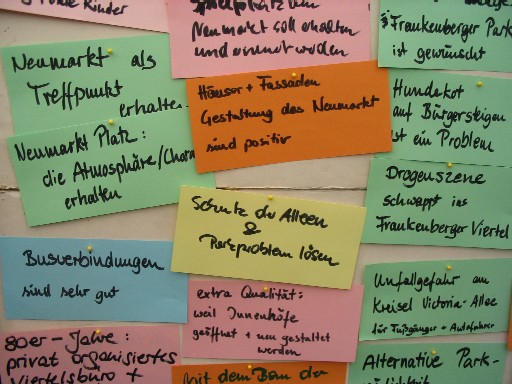 Kinder
Neumarkt als
Treffpunkt
erhalten
Neumarkt Platz:
die Atmosphäre/Charm
erhalten
Busverbindungen
sind sehr gut
80er-Jahre:
privat organisiertes
Viertelsbüro +
Neumarkt soll erhalten
und erneuert werden
Häuser + Fassaden
Gestaltung des Neumarkt
sind positiv
Schutz der Alleen
&
Parkproblem lösen
extra Qualität:
weil Innenhöfe
geöffnet + neu gestaltet
werden
mit dem Bau der
Frankenberger Park
ist gewünscht
Hundekot
auf Bürgersteigen
ist ein Problem
Drogenszene
schwappt ins
Frankenberger Viertel
Unfallgefahr am
Kreisel Victoria-Allee
für Fußgänger + Autofahrer
Alternative Park-